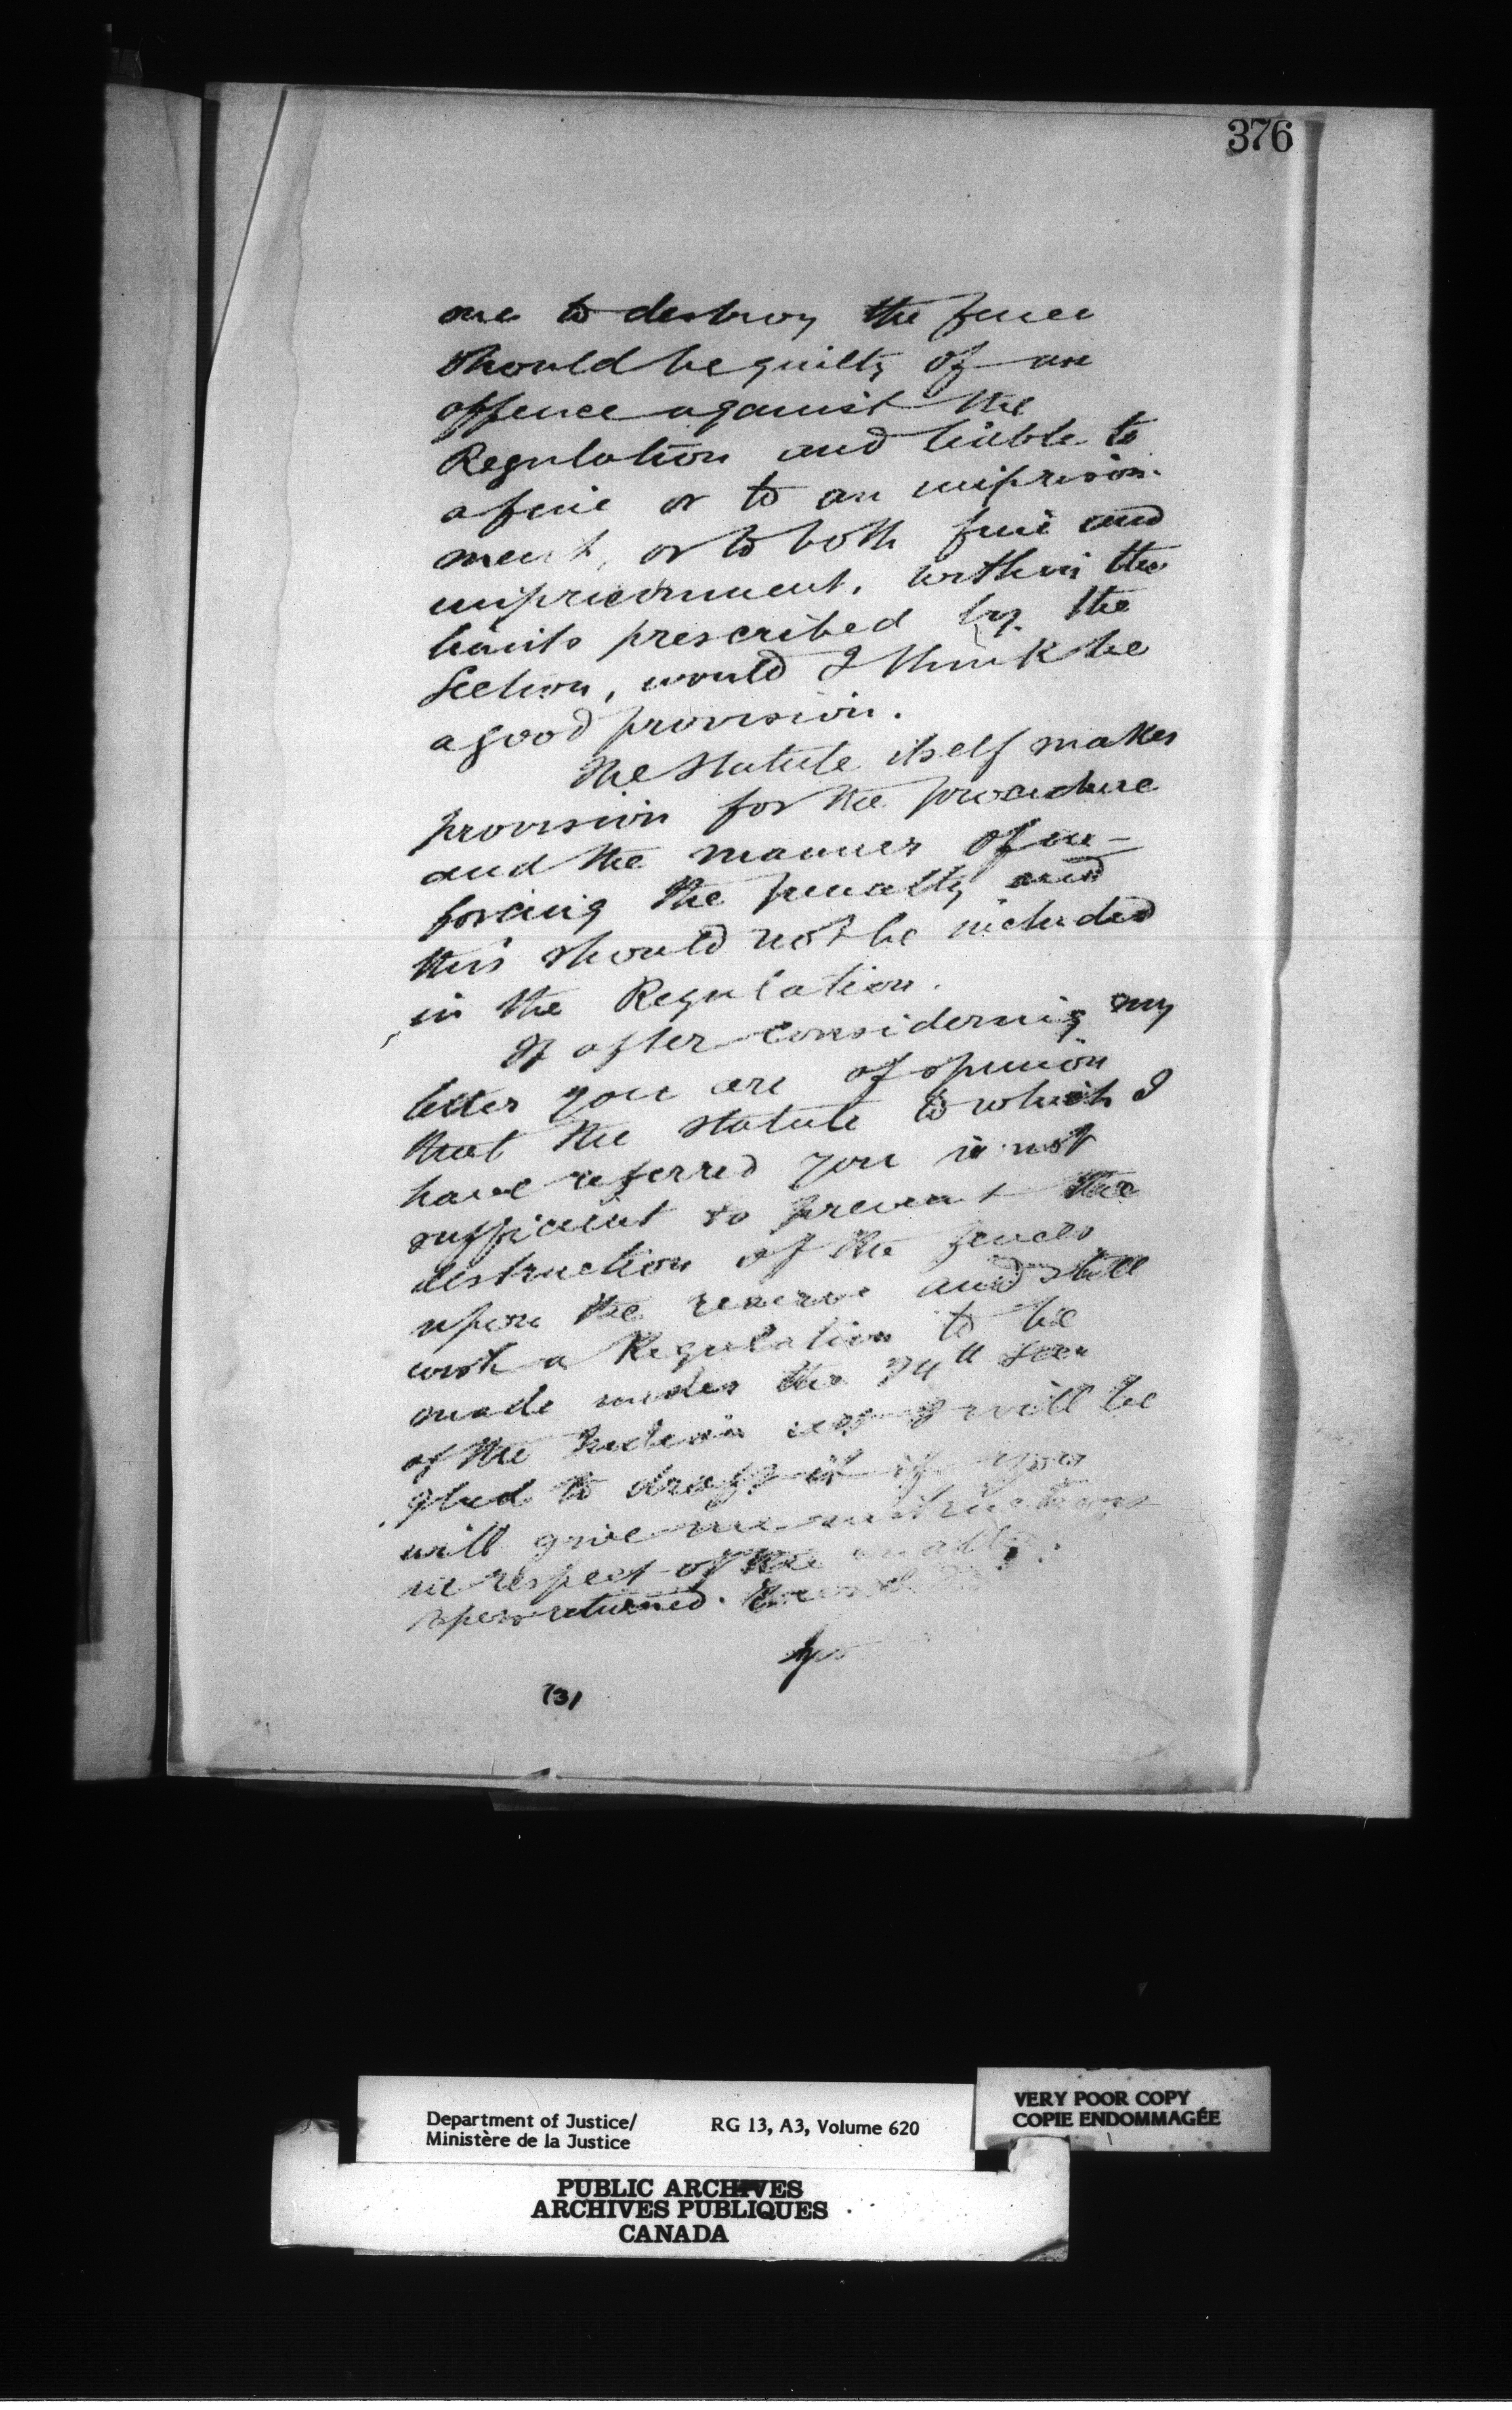 376
one to destroy the fence
should be guilty of an
offence against the
Regulation and liable to
a fine or to an imprison-
ment, or to both fine and
imprisonment, within the
limits prescribed by the
Section, would I think be
a good provision.
The Statute itself makes
provision for the procedure
and the manner of en-
forcing the penalty and
this should not be included
in the Regulation.
If after considering my
letter you are of opinion
that the statute to which I
have referred you is not
sufficient to prevent the
destruction of the fences
upon the reserve and still
wish a Regulation to be
made under the
of the Indian act I will be
glad to draft it if you
will give me instructions
in respect of the matter.
papers returned.
(3)
Department of Justice/
Ministère de la Justice
RG 13, A3, Volume 620
VERY POOR COPY
COPIE ENDOMMAGÉE
PUBLIC ARCHIVES
ARCHIVES PUBLIQUES
CANADA